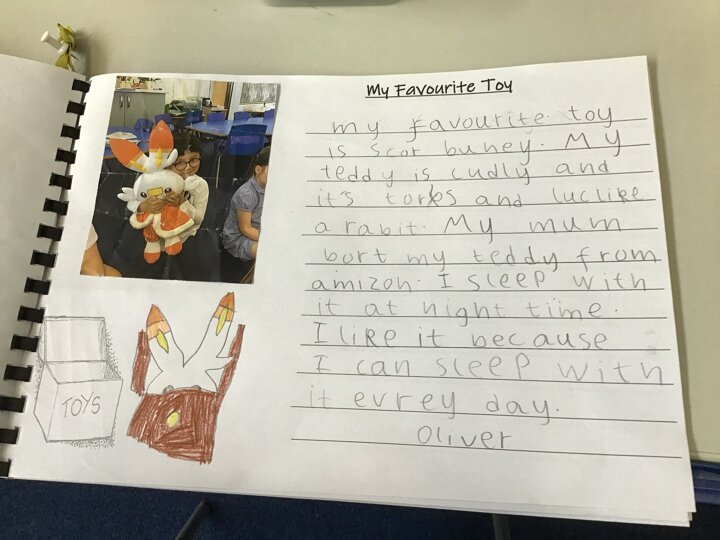 My Favourite Toy
my favourite toy
is scor buney. My
teddy is cudly and
it's torks and luclike
a rabit. My mum
bort my teddy from
amizon. I sleep with
it at night time.
I like it because
I can sleep with
it evrey day.
Oliver
TOYS